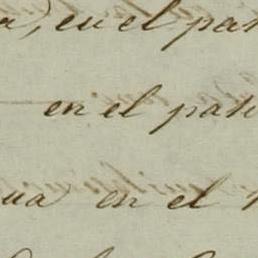 a, en el pas
en el pas
ua en el